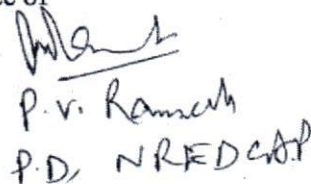 of
P.V. Ramesh
P.D, NREDCAP